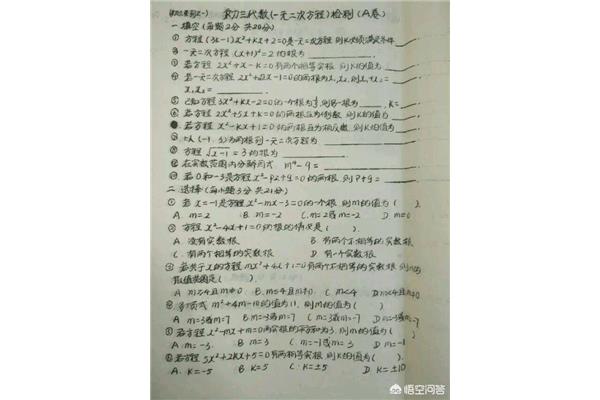 初三代数(一元二次方程)检测(A卷)
一.填空(每题2分 共20分)
① 方程(3k-1)x²+kx+2=0是一元二次方程,则k必须满足条件
② 一元二次方程(x+1)²=2的根为
③ 若方程2x²+x-k=0有两个相等实根,则k的值为
④ 若一元二次方程2x²+ x-1=0的两根为x₁,x₂,则x₁+x₂=
x₁x₂=
⑤ 已知方程3x²+kx-2=0的一个根为 ,则另一根为 ,k=
⑥ 若方程2x²+5x+k=0的两根互为倒数,则k的值为
若方程x²-kx+1=0的两根互为相反数,则k的值为
以(-1,3)为两根的一元二次方程为
方程√x-1=3的根为
在实数范围内分解因式 m⁴-9=
若0和-3是方程x²-px+q=0的两根,则p+q=
二.选择(每小题3分 共21分)
① 若x=-1是方程x²-mx-3=0的一个根,则m的值为( ).
A. m=2 B. m=-2 C. m=2或m=-2 D. m=0
② 方程x²-4x+1=0的根的情况是( ).
A. 没有实数根 B. 有两个不相等的实数根
C. 有两个相等的实数根 D. 有一个实数根
③ 若关于x的方程mx²+4x+1=0有两个不相等的实数根,则m的
取值范围是( )
A. m>4且m≠0 B. m≤4且m≠0 C. m<4 D. m<4且m≠0
④ 多项式m²+4m-10的值为11,则m的值为( )
A. m=3或m=7 B. m=-3或m=7 C. m=3或m=-7 D. m=-3或m=-7
⑤ 若方程x²-mx+m=0两实根的平方和为3,则m的值为( )
A. m=-3. B. m=3 C. m=-1或m=3 D. m=-1
⑥ 若方程5x²+2kx+5=0有两相等实根,则k的值为( ).
A. k=-5 B. k=5 C. k=±5 D. k=±10
悟空问答